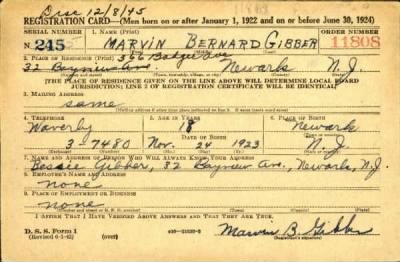 Disc 12/8/45
REGISTRATION CARD—(Men born on or after January 1, 1922 and on or before June 30, 1924)
SERIAL NUMBER 1. NAME (Print) ORDER NUMBER
N 245 MARVIN BERNARD GIBBER 11808
2. PLACE OF RESIDENCE (Print) 366 Badger Ave
32 Bayview Ave. Newark N. J.
[THE PLACE OF RESIDENCE GIVEN ON THE LINE ABOVE WILL DETERMINE LOCAL BOARD
JURISDICTION; LINE 2 OF REGISTRATION CERTIFICATE WILL BE IDENTICAL]
3. MAILING ADDRESS
same
4. TELEPHONE 5. AGE IN YEARS 6. PLACE OF BIRTH
Waverly 18 Newark
DATE OF BIRTH
3-7480 Nov. 24 1923 N. J.
7. NAME AND ADDRESS OF PERSON WHO WILL ALWAYS KNOW YOUR ADDRESS
Bessie Gibber, 32 Bayview Ave., Newark, N. J.
8. EMPLOYER'S NAME AND ADDRESS
none
9. PLACE OF EMPLOYMENT OR BUSINESS
none
I AFFIRM THAT I HAVE VERIFIED ABOVE ANSWERS AND THAT THEY ARE TRUE.
D. S. S. Form 1
(over) Marvin B. Gibber